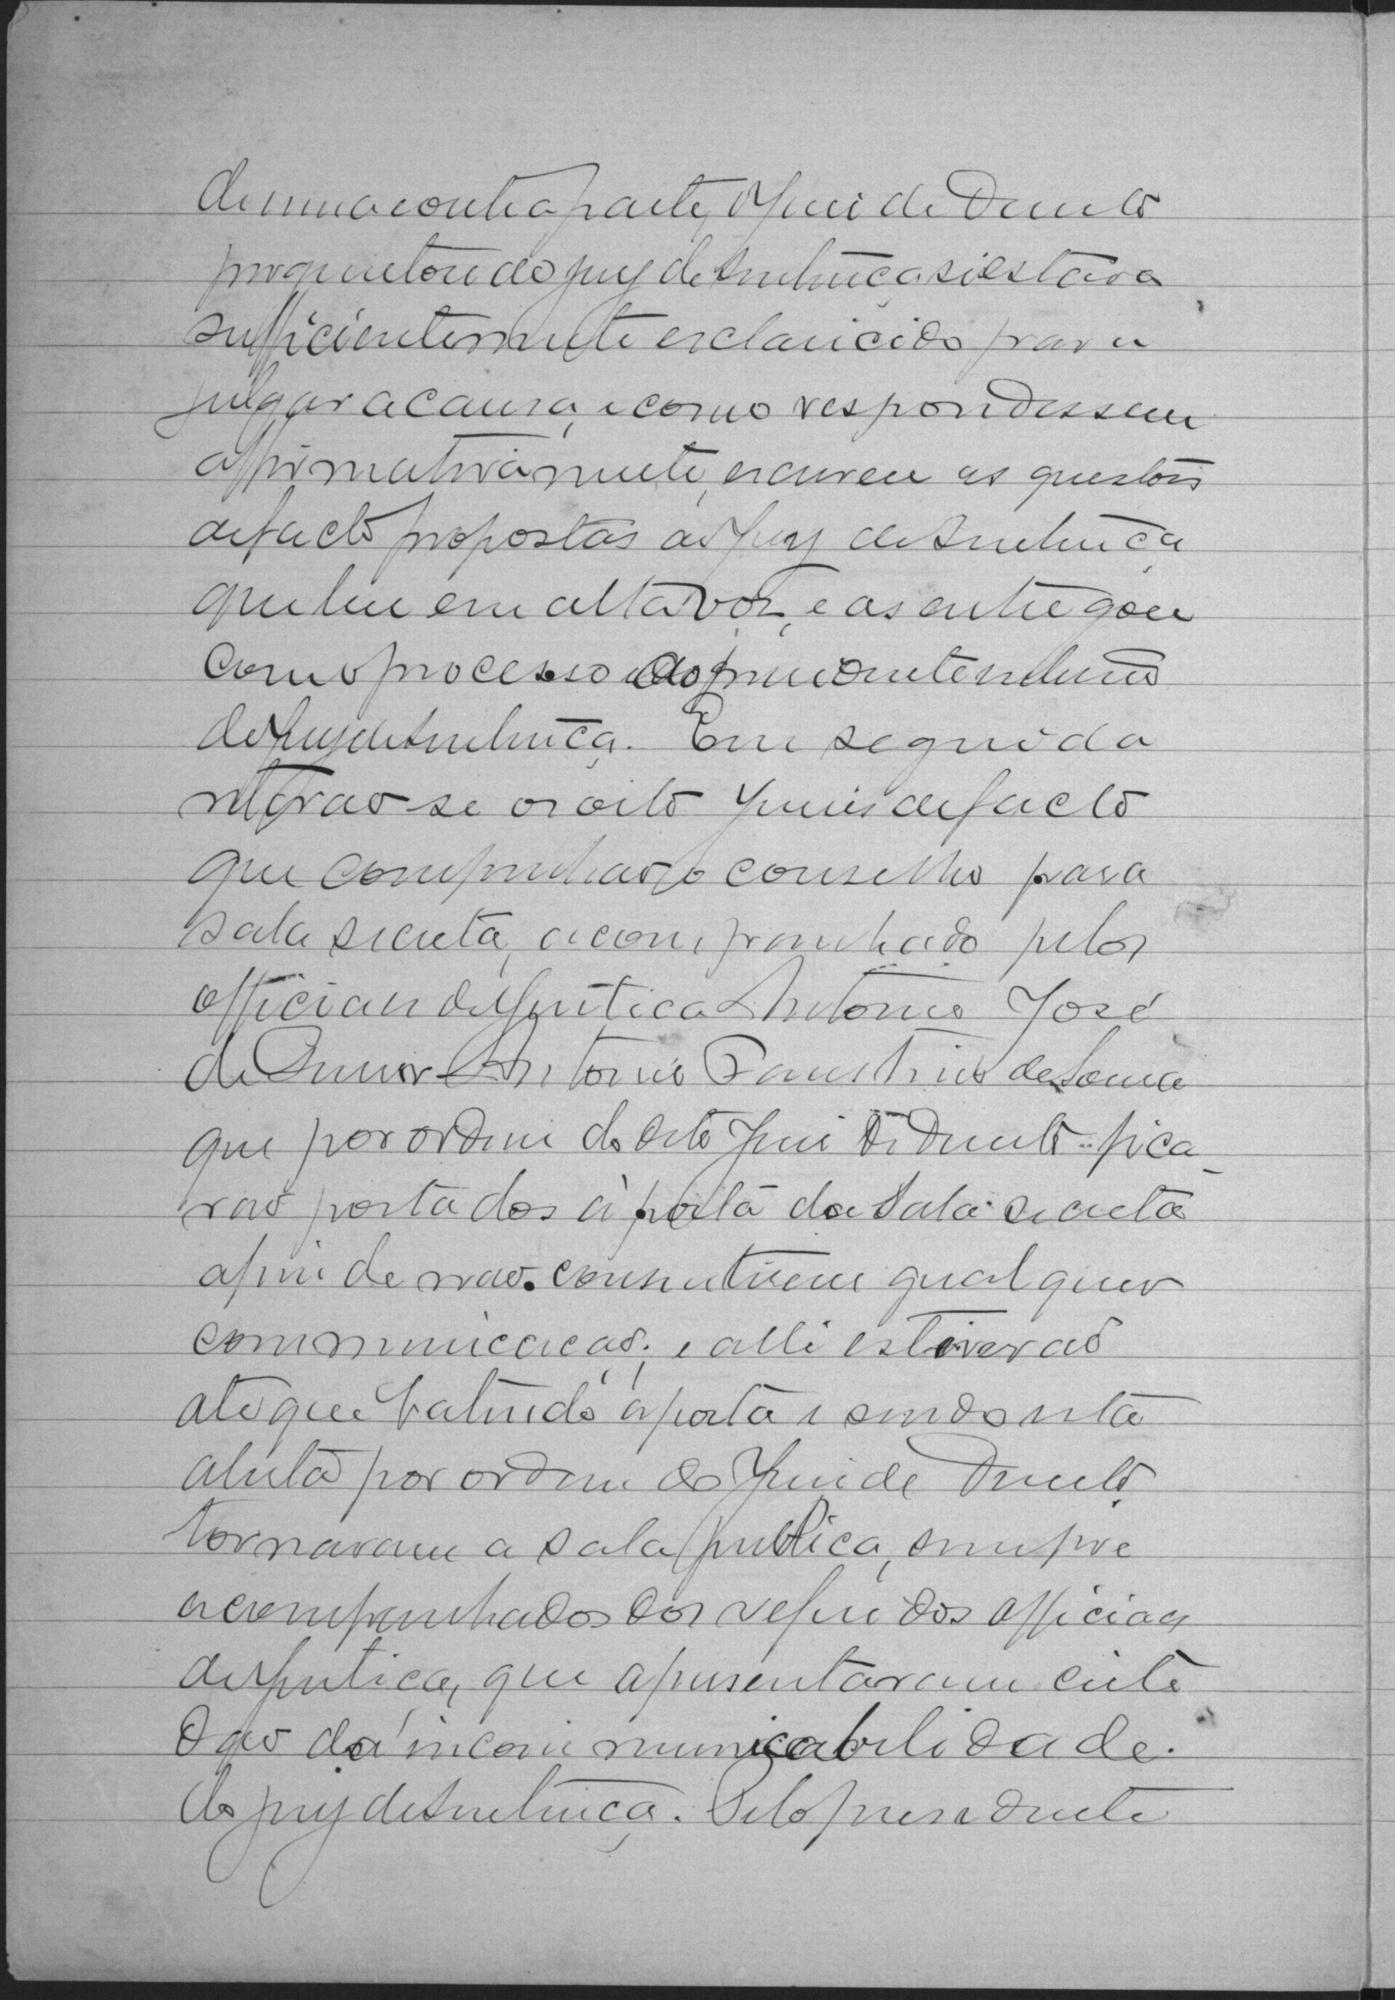 de uma e outra parte, o Juiz de Direito
perguntou ao jury de sentença si estava
sufficientemente esclarecido para
julgar a causa, e como respondessem
affirmativamente, escreveu as questões
de facto propostas ao Jury de Sentença
que leu em alta voz, e as entregou
com o processo ao
do Jury de Sentença. Em seguida
retirarão-se os oito Juizes de facto
que compunhão o conselho para
sala secreta, acompanhado pelos
officiaes de Justiça Antonio José
de Antonio Faustino de Souza
que por ordem do dito Juiz de Direito fica-
rão postados á porta da sala secreta
afim de não consentirem qualquer
communicação; e alli estiverão
até que batendo á porta e sendo esta
aberta por ordem do Juiz de Direito,
tornaram a sala publica, sempre
acompanhados dos referidos officiaes
de Justiça, que apresentaram certi
dão da incommunicabilidade
do jury de Sentença. Pelo presidente